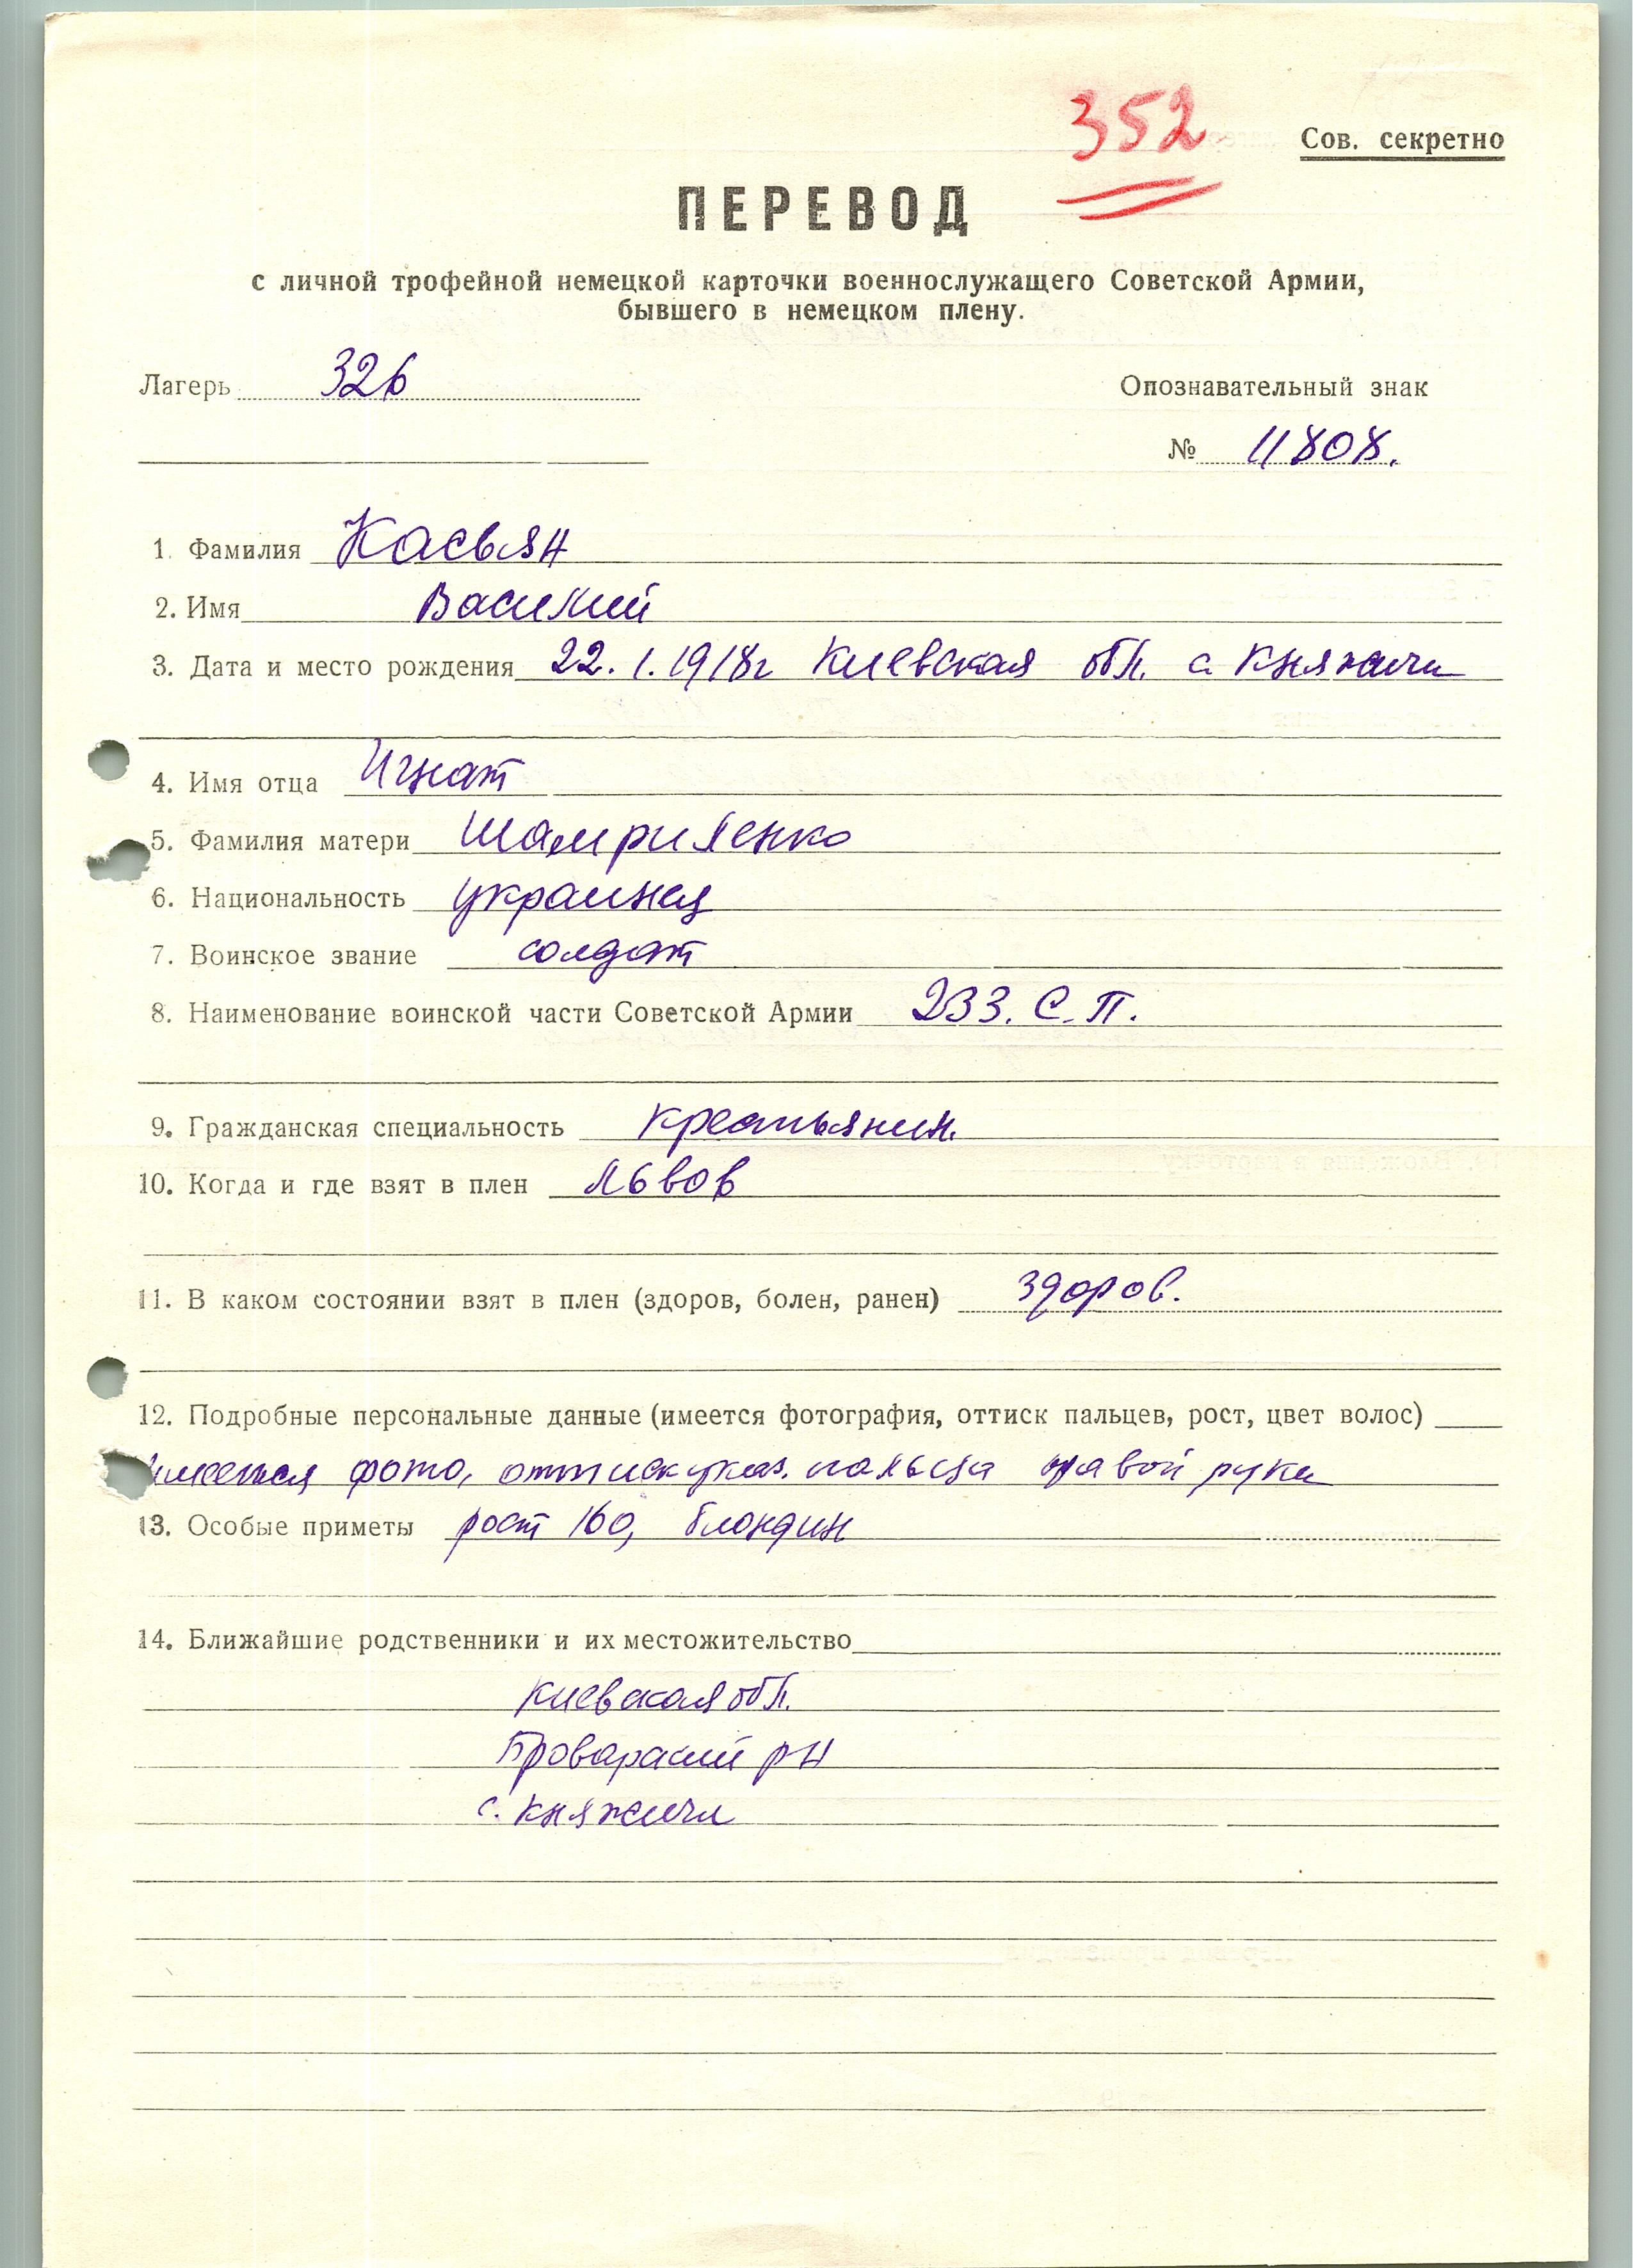 352
Сов. секретно
ПЕРЕВОД
с личной трофейной немецкой карточки военнослужащего Советской Армии,
бывшего в немецком плену.
Лагерь 326
Опознавательный знак
№ 11808.
1. Фамилия Касьян
2. Имя Василий
3. Дата и место рождения 22.1.1918г Киевская обл. с Княжичи
4. Имя отца Игнат
5. Фамилия матери
6. Национальность украинец
7. Воинское звание солдат
8. Наименование воинской части Советской Армии 233. С. П.
9. Гражданская специальность крестьянин.
10. Когда и где взят в плен Львов
11. В каком состоянии взят в плен (здоров, болен, ранен) здоров.
12. Подробные персональные данные (имеется фотография, оттиск пальцев, рост, цвет волос)
имеется фото, оттиск указ. пальца правой руки
13. Особые приметы рост 160, блондин
14. Ближайшие родственники и их местожительство
Киевская обл.
Броварский р-н
с. Княжичи